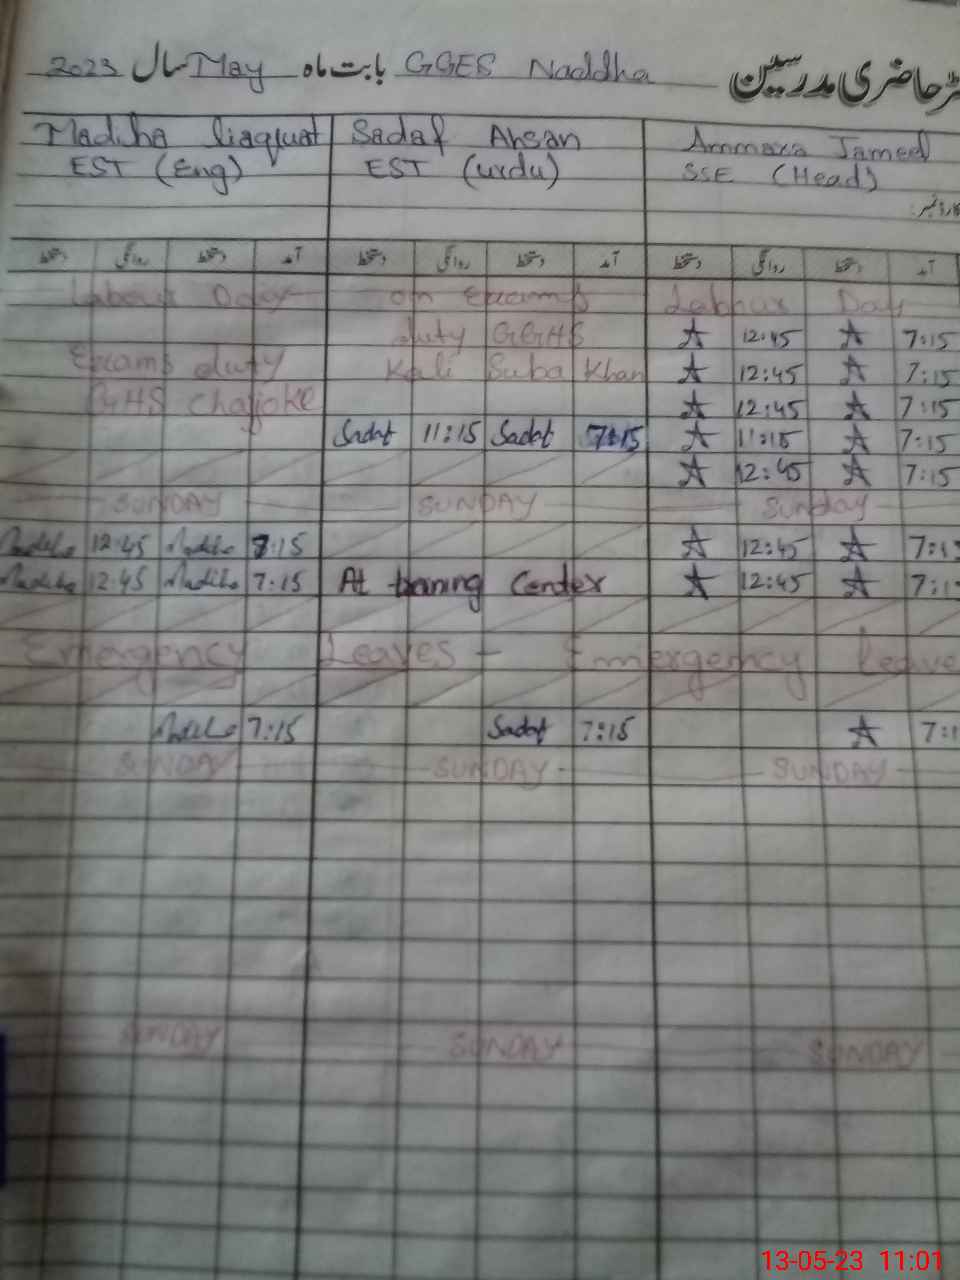 ٹر حاضری مدرسین GGES Naddha بابت ماہ May سال 2023
Madiha liaquat Sadaf Ahsan Ammara Jameel
EST (Eng) EST (urdu) SSE (Head)
آمد دستخط روانگی دستخط آمد دستخط روانگی دستخط آمد دستخط روانگی دستخط
Labour Day on Exams Labour Day
duty GGHS A 12:45 A 7:15
Exams duty Kali Suba Khan A 12:45 A 7:15
GHS Chajoke A 12:45 A 7:15
Sadaf 11:15 Sadaf 7:15 A 11:15 A 7:15
A 12:45 A 7:15
SUNDAY SUNDAY Sunday
Madiha 12:45 Madiha 7:15 A 12:45 A 7:15
Madiha 12:45 Madiha 7:15 At traning Center A 12:45 A 7:15
Emergency Leaves - Emmergency leave
Madiha 7:15 Sadaf 7:15 A 7:1
SUNDAY SUNDAY SUNDAY
SUNDAY SUNDAY SUNDAY
13-05-23 11:01